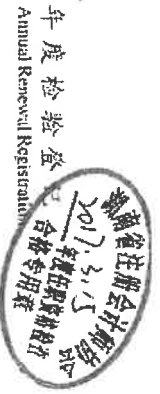 年度检验登记
Annual Renewal Registration
湖南省注册会计师协会
2017.3.15
年度任职资格检查
合格专用章